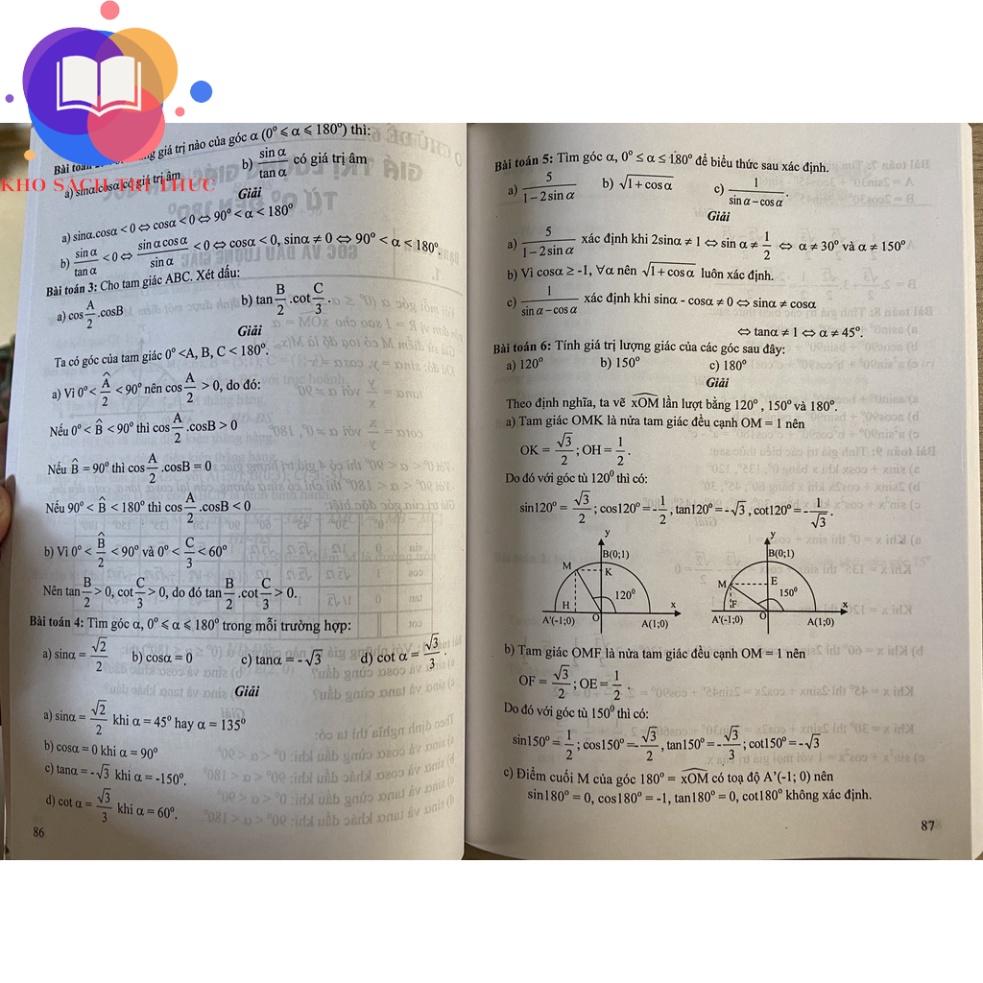 KHO SÁCH TRI THỨC
giá trị nào của góc α (0° ⩽ α ⩽ 180°) thì:
a) sinα.cosα có giá trị âm b) sin α / tan α có giá trị âm
Giải
a) sinα.cosα < 0 ⇔ cosα < 0 ⇔ 90° < α < 180°
b) sin α / tan α < 0 ⇔ sin α cos α / sin α < 0 ⇔ cosα < 0, sinα ≠ 0 ⇔ 90° < α < 180°.
Bài toán 3: Cho tam giác ABC. Xét dấu:
a) cos A/2 .cosB b) tan B/2 .cot C/3.
Giải
Ta có góc của tam giác 0° <A, B, C < 180°.
a) Vì 0° < Â/2 < 90° nên cos A/2 > 0, do đó:
Nếu 0° < B̂ < 90° thì cos A/2 .cosB > 0
Nếu B̂ = 90° thì cos A/2 .cosB = 0
Nếu 90° < B̂ < 180° thì cos A/2 .cosB < 0
b) Vì 0° < B̂/2 < 90° và 0° < C/3 < 60°
Nên tan B/2 > 0, cot C/3 > 0, do đó tan B/2 .cot C/3 > 0.
Bài toán 4: Tìm góc α, 0° ⩽ α ⩽ 180° trong mỗi trường hợp:
a) sinα = √2/2 b) cosα = 0 c) tanα = -√3 d) cot α = √3/3.
Giải
a) sinα = √2/2 khi α = 45° hay α = 135°
b) cosα = 0 khi α = 90°
c) tanα = -√3 khi α = -150°.
d) cot α = √3/3 khi α = 60°.
86
Bài toán 5: Tìm góc α, 0° ≤ α ≤ 180° để biểu thức sau xác định.
a) 5/(1 − 2sin α) b) √(1 + cos α) c) 1/(sin α − cos α).
Giải
a) 5/(1 − 2sin α) xác định khi 2sinα ≠ 1 ⇔ sin α ≠ 1/2 ⇔ α ≠ 30° và α ≠ 150°
b) Vì cosα ≥ -1, ∀α nên √(1 + cos α) luôn xác định.
c) 1/(sin α − cos α) xác định khi sinα - cosα ≠ 0 ⇔ sinα ≠ cosα
⇔ tanα ≠ 1 ⇔ α ≠ 45°.
Bài toán 6: Tính giá trị lượng giác của các góc sau đây:
a) 120° b) 150° c) 180°
Giải
Theo định nghĩa, ta vẽ xOM lần lượt bằng 120°, 150° và 180°.
a) Tam giác OMK là nửa tam giác đều cạnh OM = 1 nên
OK = √3/2 ; OH = 1/2.
Do đó với góc tù 120° thì có:
sin120° = √3/2 ; cos120° = -1/2, tan120° = -√3, cot120° = -1/√3.
y
B(0;1)
M
K
120°
H
x
A'(-1;0)
O
A(1;0)
y
B(0;1)
M
E
150°
F
x
A'(-1;0)
O
A(1;0)
b) Tam giác OMF là nửa tam giác đều cạnh OM = 1 nên
OF = √3/2 ; OE = 1/2.
Do đó với góc tù 150° thì có:
sin150° = 1/2 ; cos150° = -√3/2, tan150° = -√3/3 ; cot150° = -√3
c) Điểm cuối M của góc 180° = xOM có toạ độ A'(-1; 0) nên
sin180° = 0, cos180° = -1, tan180° = 0, cot180° không xác định.
87